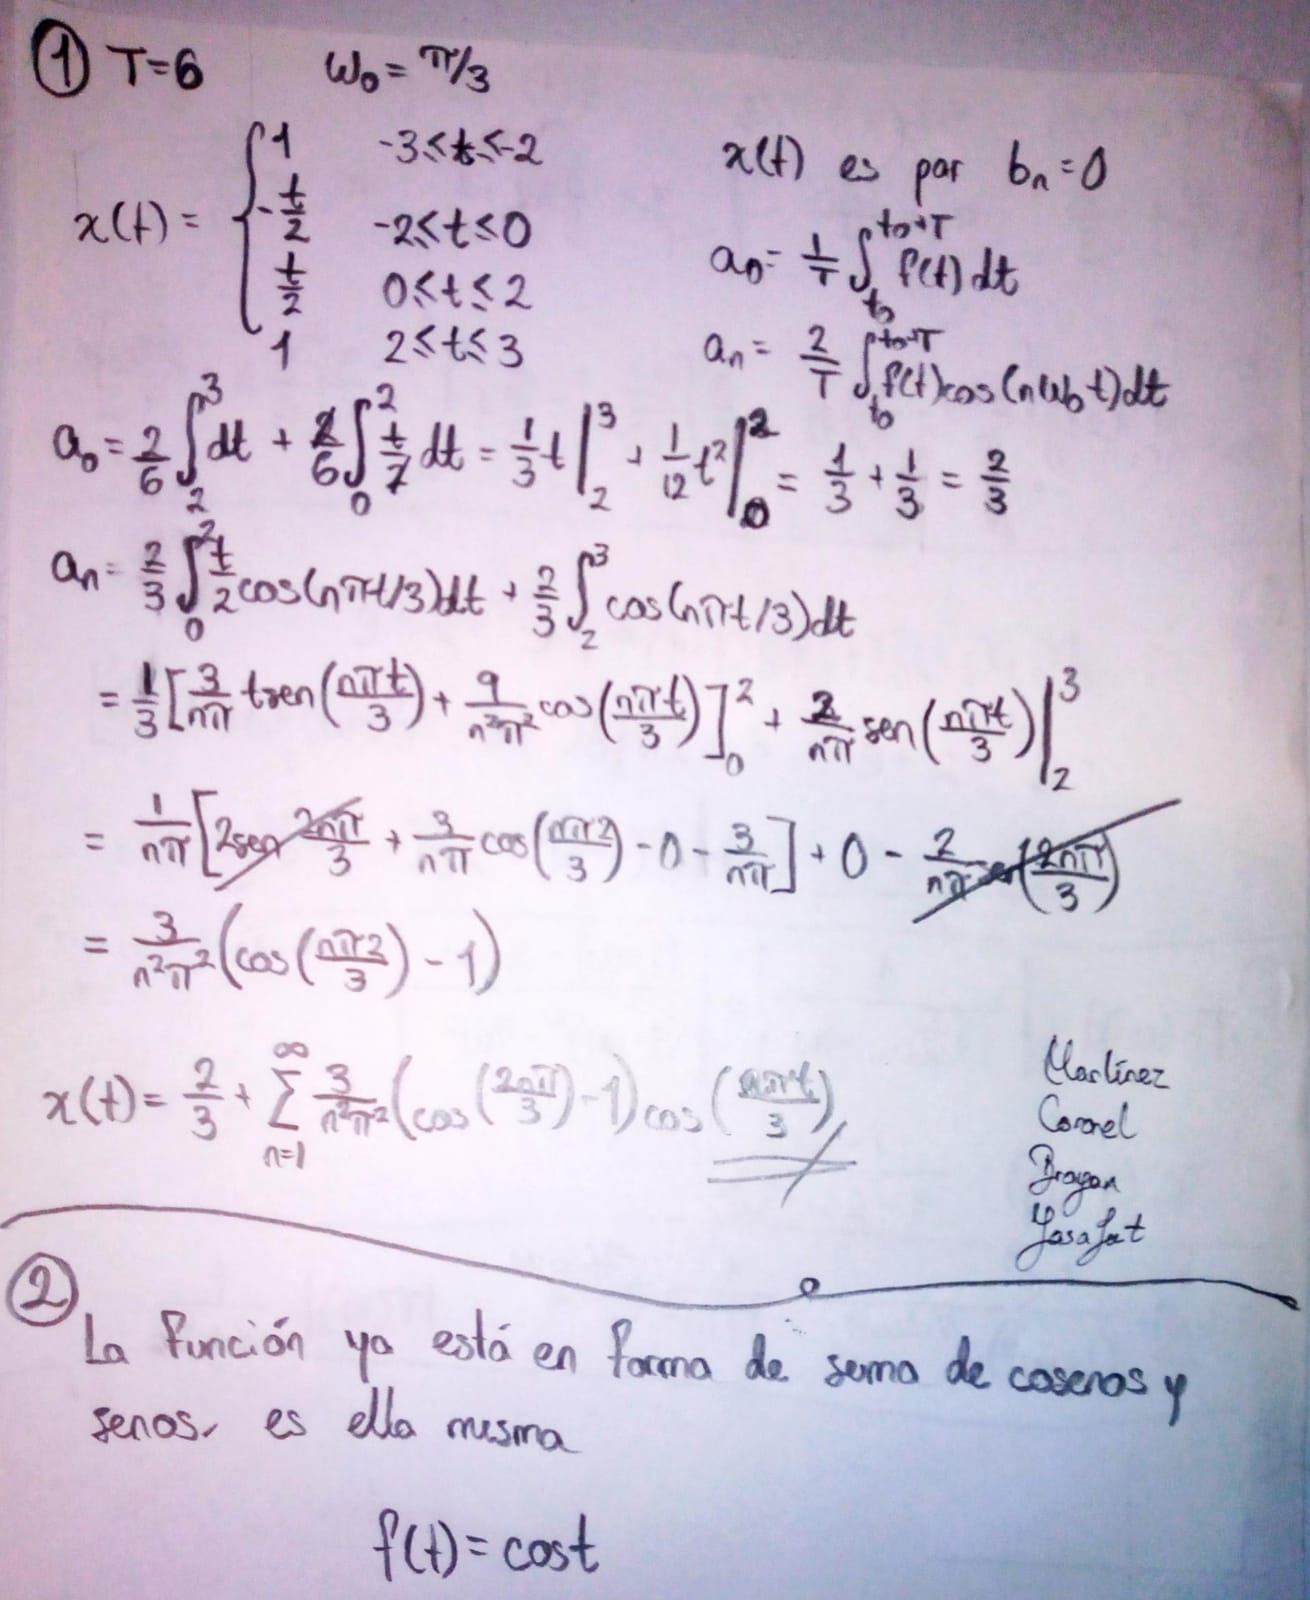 ① T=6 ω₀ = π/3
x(t) = { 1 -3≤t≤-2
-t/2 -2≤t≤0
t/2 0≤t≤2
1 2≤t≤3
x(t) es par bₙ=0
a₀= 1/T ∫_{t₀}^{t₀+T} f(t) dt
aₙ = 2/T ∫_{t₀}^{t₀+T} f(t)cos(nω₀t)dt
a₀ = 2/6 ∫_2^3 dt + 2/6 ∫_0^2 t/2 dt = 1/3 t |_2^3 + 1/12 t² |_0^2 = 1/3 + 1/3 = 2/3
aₙ = 2/3 ∫_0^2 t/2 cos(nπt/3)dt + 2/3 ∫_2^3 cos(nπt/3)dt
= 1/3 [3/nπ tsen(nπt/3) + 9/n²π² cos(nπt/3)]_0^2 + 2/nπ sen(nπt/3)|_2^3
= 1/nπ [2sen 2nπ/3 + 3/nπ cos(nπ2/3) - 0 - 3/nπ] + 0 - 2/nπ sen(2nπ/3)
= 3/n²π² (cos(nπ2/3) - 1)
x(t) = 2/3 + ∑_{n=1}^∞ 3/n²π² (cos(2nπ/3) - 1) cos(nπt/3)
Martínez
Coronel
Brayan
Yosafat
②
La función ya está en forma de suma de cosenos y
senos, es ella misma
f(t) = cost